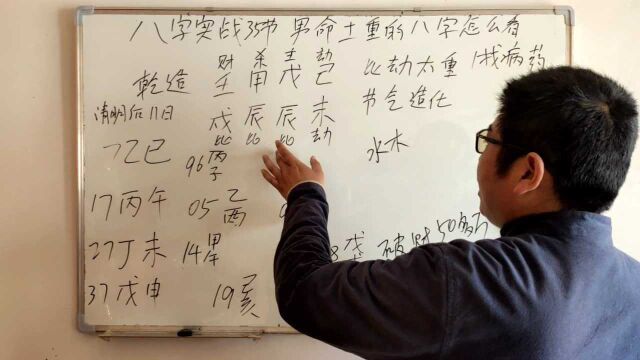 八字实战35节 男命土重的八字怎么看
财 杀 主 劫
乾造 壬 甲 戊 己 比劫太重 1找病药
清明后11日 戌 辰 辰 未 节气造化
比 比 比 劫
7乙巳 96丙子 水木
17丙午 05乙酉
27丁未 14甲午 戊 破财50多万
37戊申 19亥